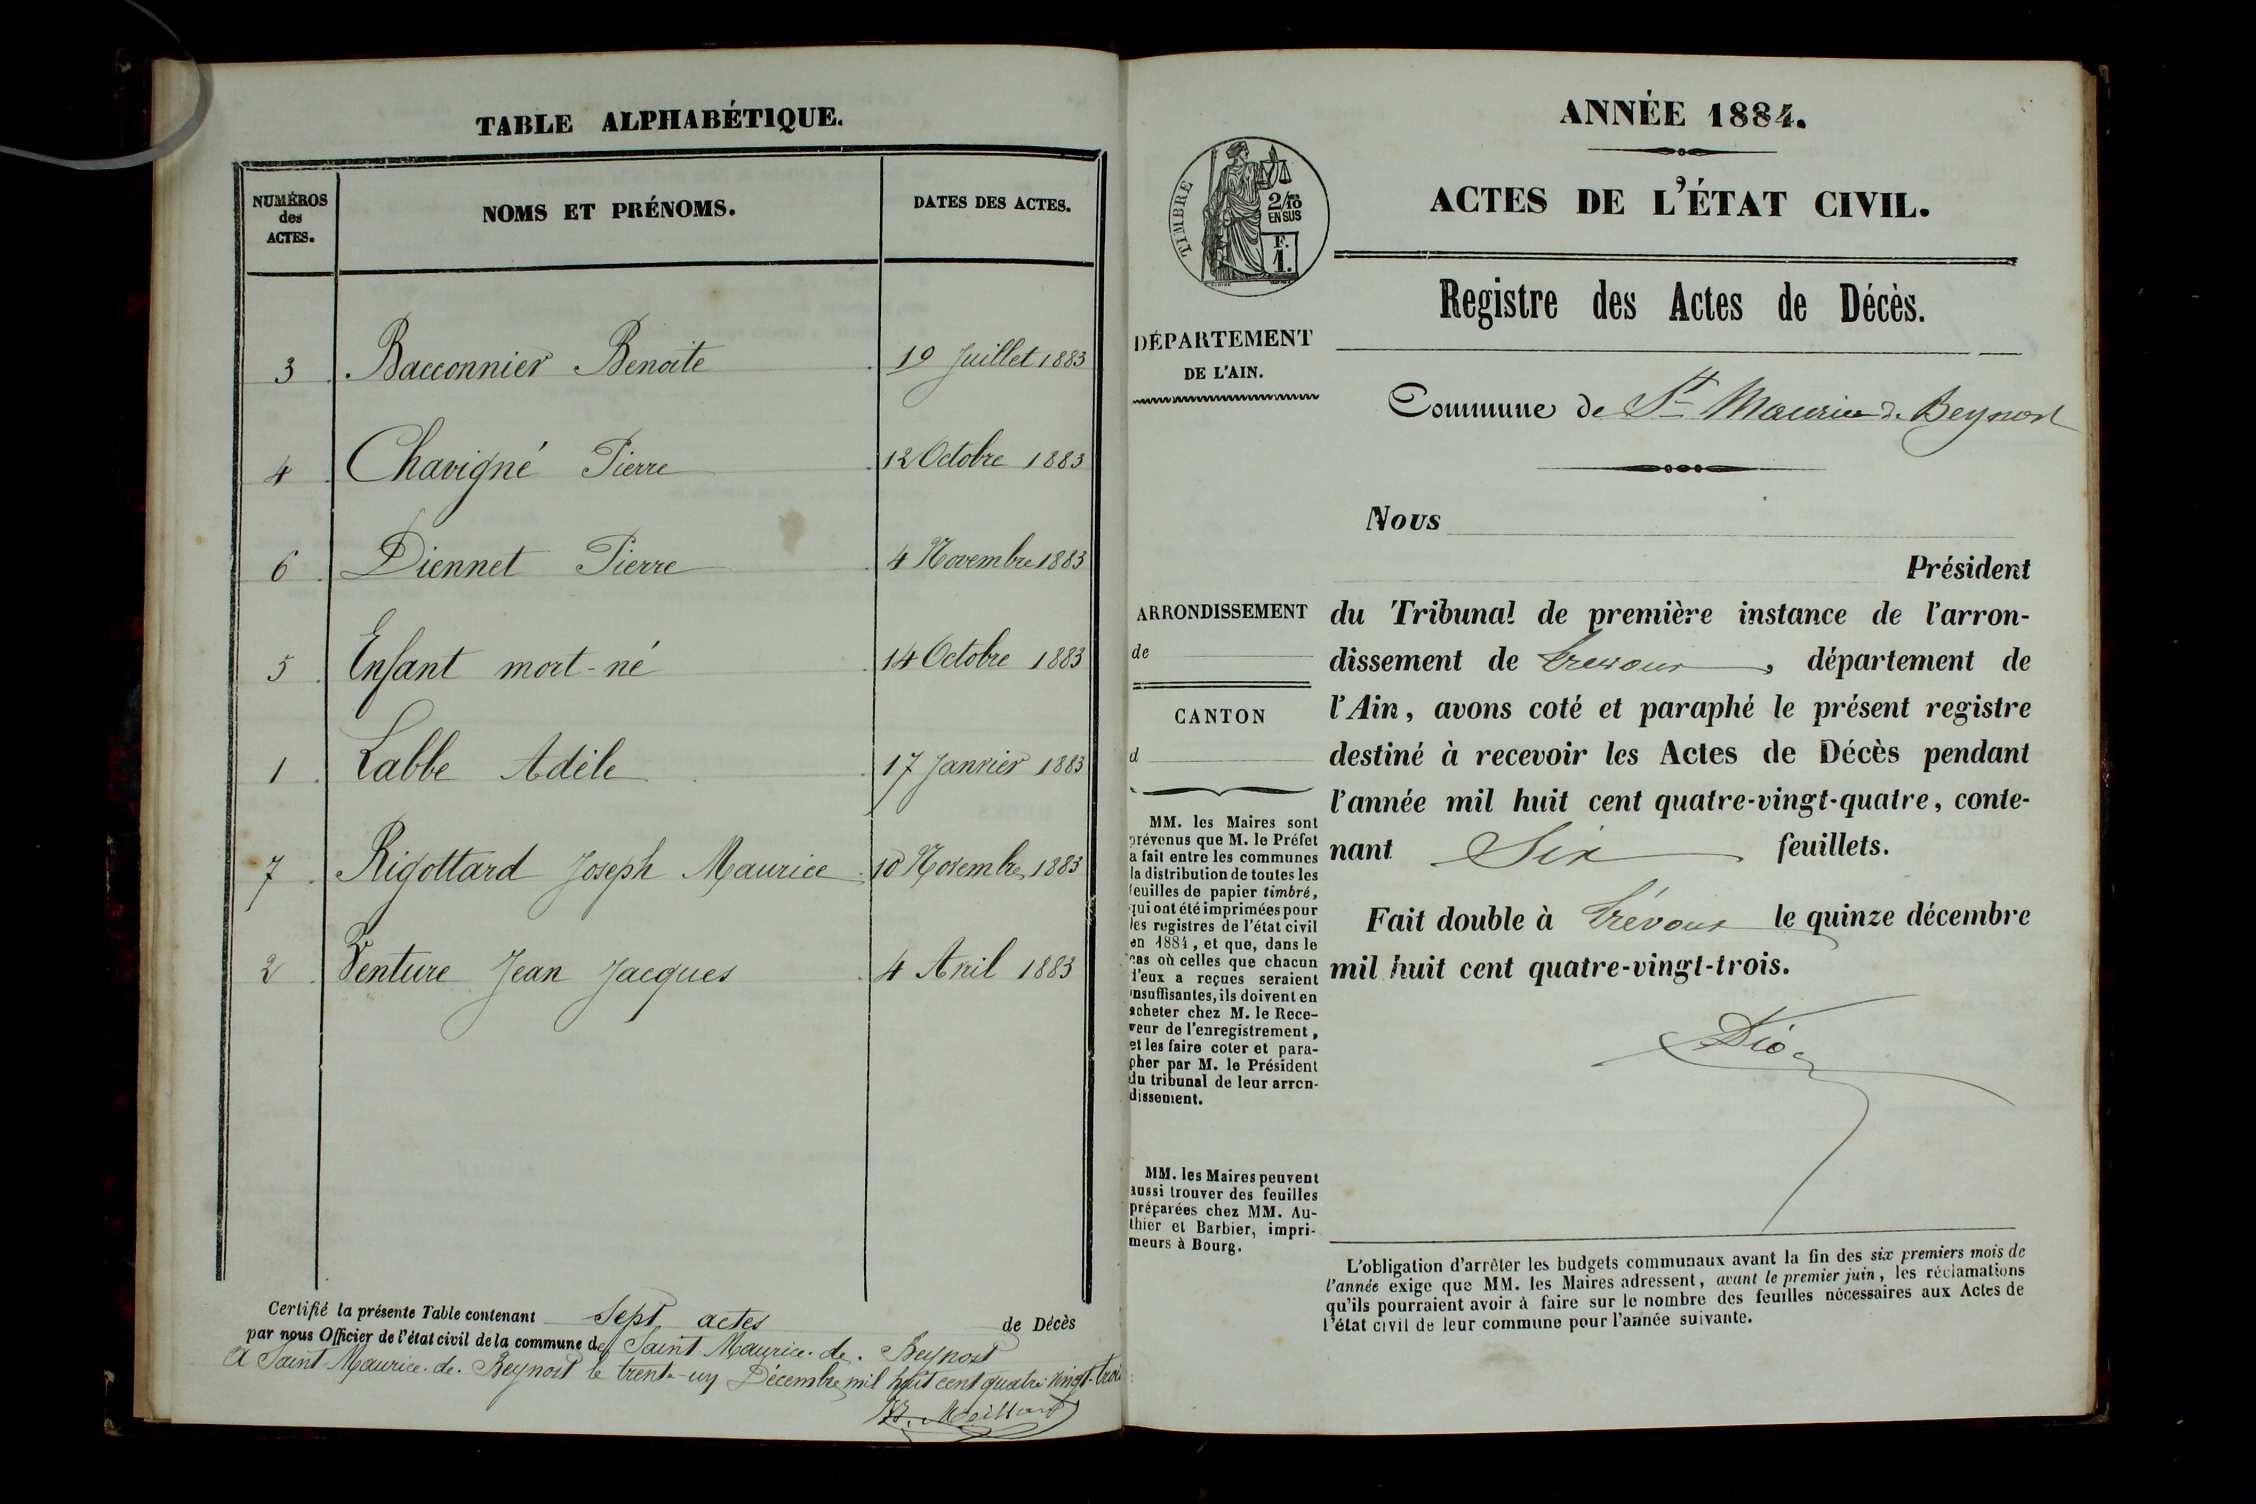 TABLE ALPHABÉTIQUE.
NUMÉROS
des
ACTES.
NOMS ET PRÉNOMS.
DATES DES ACTES.
3 Bacconnier Benoite 19 Juillet 1883
4 Chavigné Pierre 12 Octobre 1883
6 Diennet Pierre 4 Novembre 1883
5 Enfant mort-né 14 Octobre 1883
1 Labbe Adèle 17 Janvier 1883
7 Rigottard Joseph Maurice 10 Novembre 1883
2 Venture Jean Jacques 4 Avril 1883
Certifié la présente Table contenant Sept actes de Décès
par nous Officier de l'état civil de la commune de Saint Maurice. de. Beynost
A Saint Maurice. de. Beynost le trente-un Décembre mil huit cent quatre-vingt-trois
ANNÉE 1884.
ACTES DE L'ÉTAT CIVIL.
TIMBRE
2/10
EN SUS
F.
1.
Registre des Actes de Décès.
DÉPARTEMENT
DE L'AIN.
Commune de St Maurice de Beynost
Nous
Président
ARRONDISSEMENT
de
CANTON
d
du Tribunal de première instance de l'arron-
dissement de Trevoux, département de
l'Ain, avons coté et paraphé le présent registre
destiné à recevoir les Actes de Décès pendant
l'année mil huit cent quatre-vingt-quatre, conte-
nant Six feuillets.
Fait double à Trévoux le quinze décembre
mil huit cent quatre-vingt-trois.
MM. les Maires sont
prévenus que M. le Préfet
a fait entre les communes
la distribution de toutes les
feuilles de papier timbré,
qui ont été imprimées pour
les registres de l'état civil
en 1884, et que, dans le
cas où celles que chacun
d'eux a reçues seraient
insuffisantes, ils doivent en
acheter chez M. le Rece-
veur de l'enregistrement,
et les faire coter et para-
pher par M. le Président
du tribunal de leur arron-
dissement.
MM. les Maires peuvent
aussi trouver des feuilles
préparées chez MM. Au-
thier et Barbier, impri-
meurs à Bourg.
L'obligation d'arrêter les budgets communaux avant la fin des six premiers mois de
l'année exige que MM. les Maires adressent, avant le premier juin, les réclamations
qu'ils pourraient avoir à faire sur le nombre des feuilles nécessaires aux Actes de
l'état civil de leur commune pour l'année suivante.